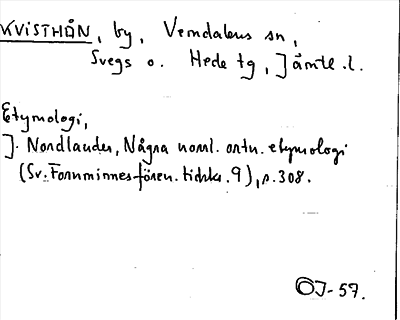 KVISTHÅN, by, Vemdalens sn,
Svegs o. Hede tg, Jämtl. l.
Etymologi,
J. Nordlander, Några norrl. ortn. etymologi
(Sv. Fornminnesfören. tidskr. 9), s. 308.
OJ-57.